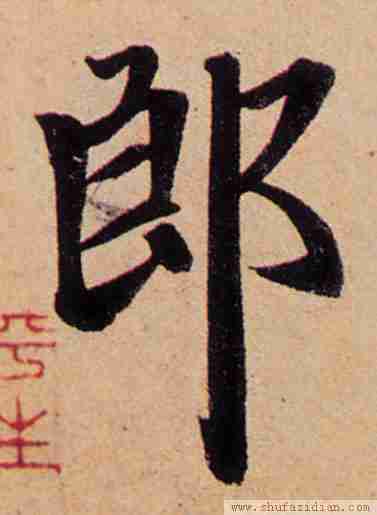 郎
www.shufazidian.com